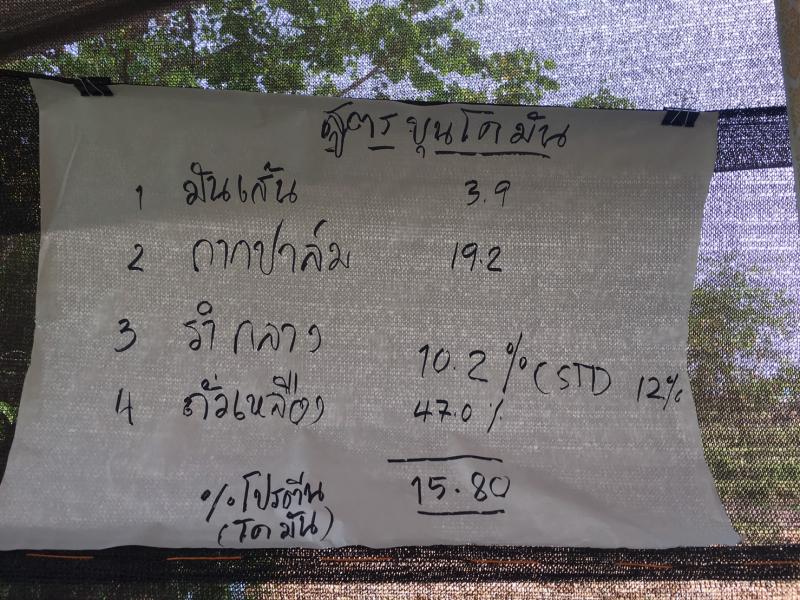 สูตร ขุนโคมัน
1 มันเส้น 3.9
2 กากปาล์ม 19.2
3 รำกลาง 10.2 % (STD 12%
4 ถั่วเหลือง 47.0 %
% โปรตีน 15.80
(โคมัน)